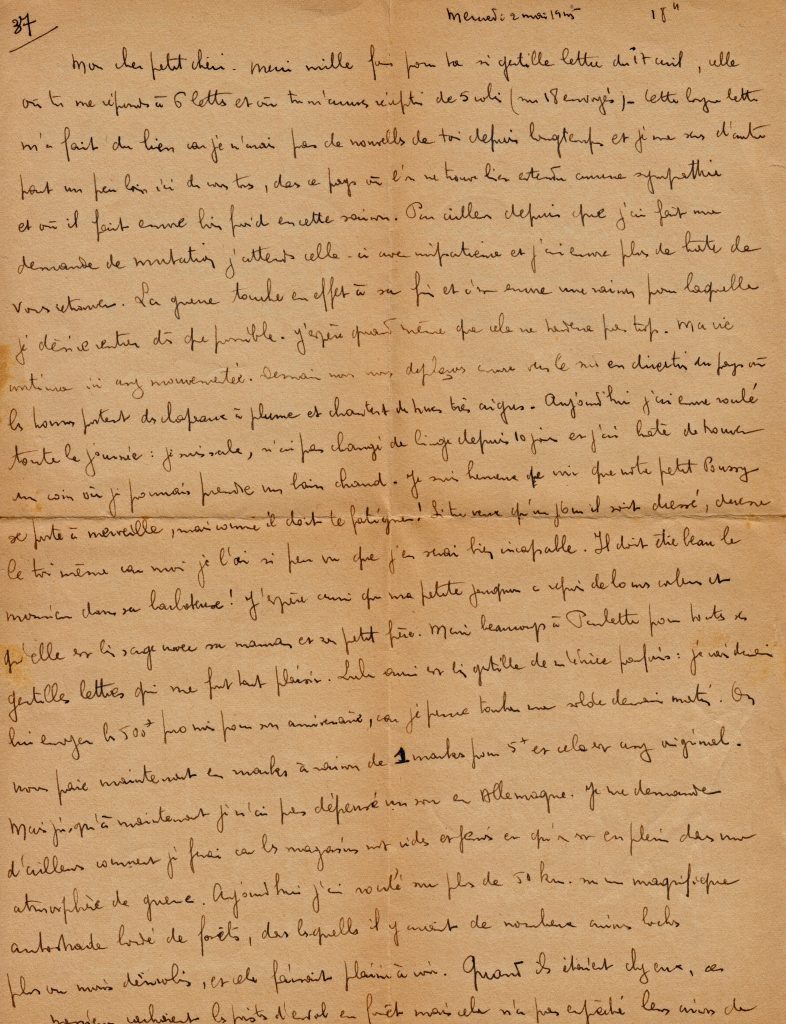 37
Mercredi 2 mai 1945 18 h
Mon cher petit chéri. Merci mille fois pour ta si gentille lettre du 17 avril, celle
où tu me réponds à 6 lettres et où tu m'annonces réception de 5 colis (sur 18 envoyés). Cette longue lettre
m'a fait du bien car je n'avais pas de nouvelles de toi depuis longtemps et je me sens d'autre
part un peu loin ici de vous tous, dans ce pays où l'on ne trouve bien entendu aucune sympathie
et où il fait encore bien froid en cette saison. Par ailleurs depuis que j'ai fait ma
demande de mutation j'attends celle-ci avec impatience et j'ai encore plus de hâte de
vous retrouver. La guerre touche en effet à sa fin et c'est encore une raison pour laquelle
je désire rentrer dès que possible. J'espère quand même que cela ne tardera pas trop. Ma vie
continue ici assez mouvementée. Demain nous nous déplaçons encore vers le sud en direction du pays où
les hommes portent des chapeaux à plume et chantent des trucs très aigus. Aujourd'hui j'ai encore roulé
toute la journée : je suis sale, n'ai pas changé de linge depuis 10 jours et j'ai hâte de trouver
un coin où je pourrais prendre un bain chaud. Je suis heureux de voir que notre petit Bussy
se porte à merveille, mais comme il doit te fatiguer ! Si tu veux qu'un jour il soit dressé, dresse
le toi même car moi je l'ai si peu vu que j'en serai bien incapable. Il doit être beau le
monsieur dans sa barboteuse ! J'espère aussi que ma petite a repris de bonnes couleurs et
qu'elle est bien sage avec sa maman et son petit frère. Merci beaucoup à Paulette pour toutes ses
gentilles lettres qui me font tant plaisir. Lulu aussi est bien gentille de m'écrire parfois : je vais demain
lui envoyer les 500f promis pour son anniversaire, car je pense toucher ma solde demain matin. On
nous paie maintenant en marks à raison de 1 marks pour 5f et cela est assez original.
Mais jusqu'à maintenant je n'ai pas dépensé un sou en Allemagne. Je me demande
d'ailleurs comment je ferai car les magasins sont vides et fermés et qu'on est en plein dans une
atmosphère de guerre. Aujourd'hui j'ai roulé sur plus de 50 km. sur un magnifique
autostrade bordé de forêts, dans lesquelles il y avait de nombreux avions boches
plus ou moins démolis, et cela faisait plaisir à voir. Quand ils étaient chez eux, ces
messieurs cachaient les pistes d'envol en forêt mais cela n'a pas empêché leurs avions de